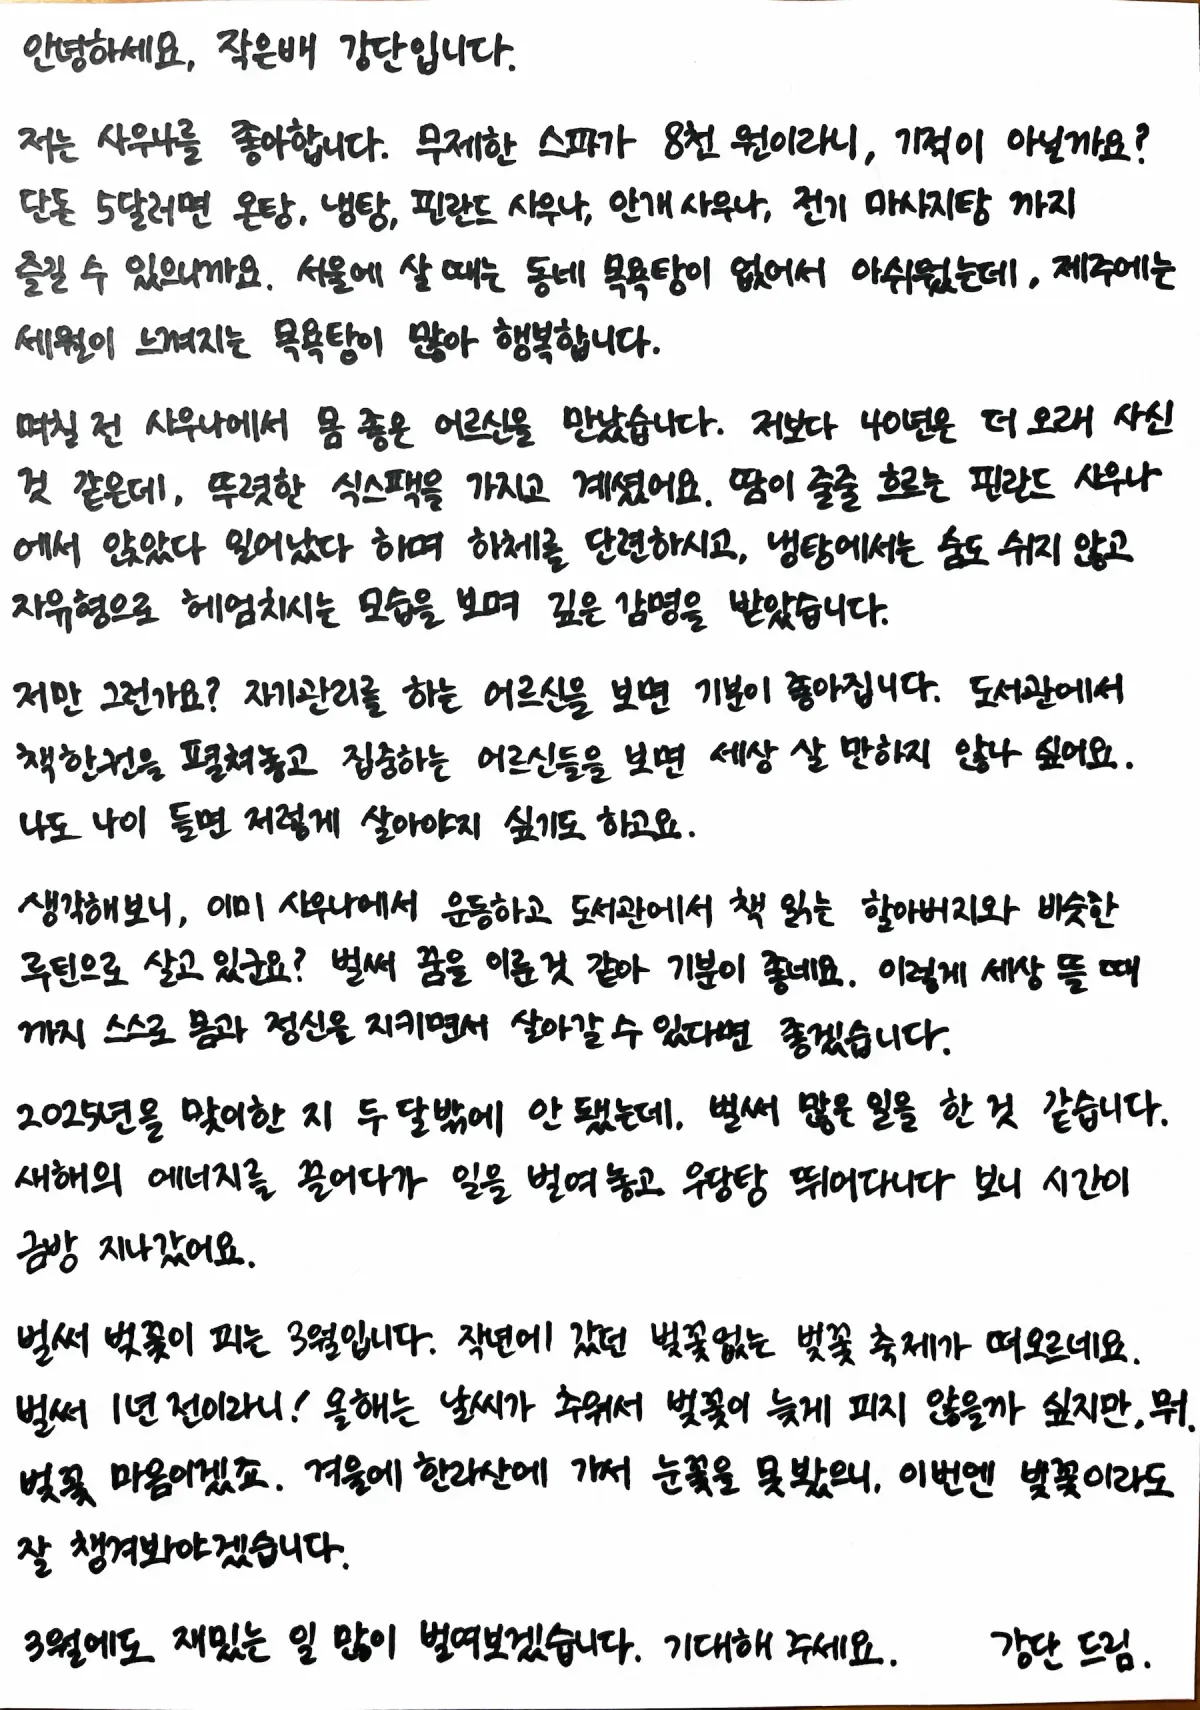 안녕하세요, 작은배 강단입니다.
저는 사우나를 좋아합니다. 무제한 스파가 8천 원이라니, 기적이 아닐까요?
단돈 5달러면 온탕, 냉탕, 핀란드 사우나, 안개 사우나, 전기 마사지탕 까지
즐길 수 있으니까요. 서울에 살 때는 동네 목욕탕이 없어서 아쉬웠는데, 제주에는
세월이 느껴지는 목욕탕이 많아 행복합니다.
며칠 전 사우나에서 몸 좋은 어르신을 만났습니다. 저보다 40년은 더 오래 사신
것 같은데, 뚜렷한 식스팩을 가지고 계셨어요. 땀이 줄줄 흐르는 핀란드 사우나
에서 앉았다 일어났다 하며 하체를 단련하시고, 냉탕에서는 숨도 쉬지 않고
자유형으로 헤엄치시는 모습을 보며 깊은 감명을 받았습니다.
저만 그런가요? 자기관리를 하는 어르신을 보면 기분이 좋아집니다. 도서관에서
책 한권을 펼쳐놓고 집중하는 어르신들을 보면 세상 살 만하지 않나 싶어요.
나도 나이 들면 저렇게 살아야지 싶기도 하고요.
생각해보니, 이미 사우나에서 운동하고 도서관에서 책 읽는 할아버지와 비슷한
루틴으로 살고 있군요? 벌써 꿈을 이룬 것 같아 기분이 좋네요. 이렇게 세상 뜰 때
까지 스스로 몸과 정신을 지키면서 살아갈 수 있다면 좋겠습니다.
2025년을 맞이한 지 두 달밖에 안 됐는데, 벌써 많은 일을 한 것 같습니다.
새해의 에너지를 끌어다가 일을 벌여 놓고 우당탕 뛰어다니다 보니 시간이
금방 지나갔어요.
벌써 벚꽃이 피는 3월입니다. 작년에 갔던 벚꽃없는 벚꽃 축제가 떠오르네요.
벌써 1년 전이라니! 올해는 날씨가 추워서 벚꽃이 늦게 피지 않을까 싶지만, 뭐.
벚꽃 마음이겠죠. 겨울에 한라산에 가서 눈꽃을 못 봤으니, 이번엔 벚꽃이라도
잘 챙겨봐야겠습니다.
3월에도 재밌는 일 많이 벌여보겠습니다. 기대해 주세요. 강단 드림.